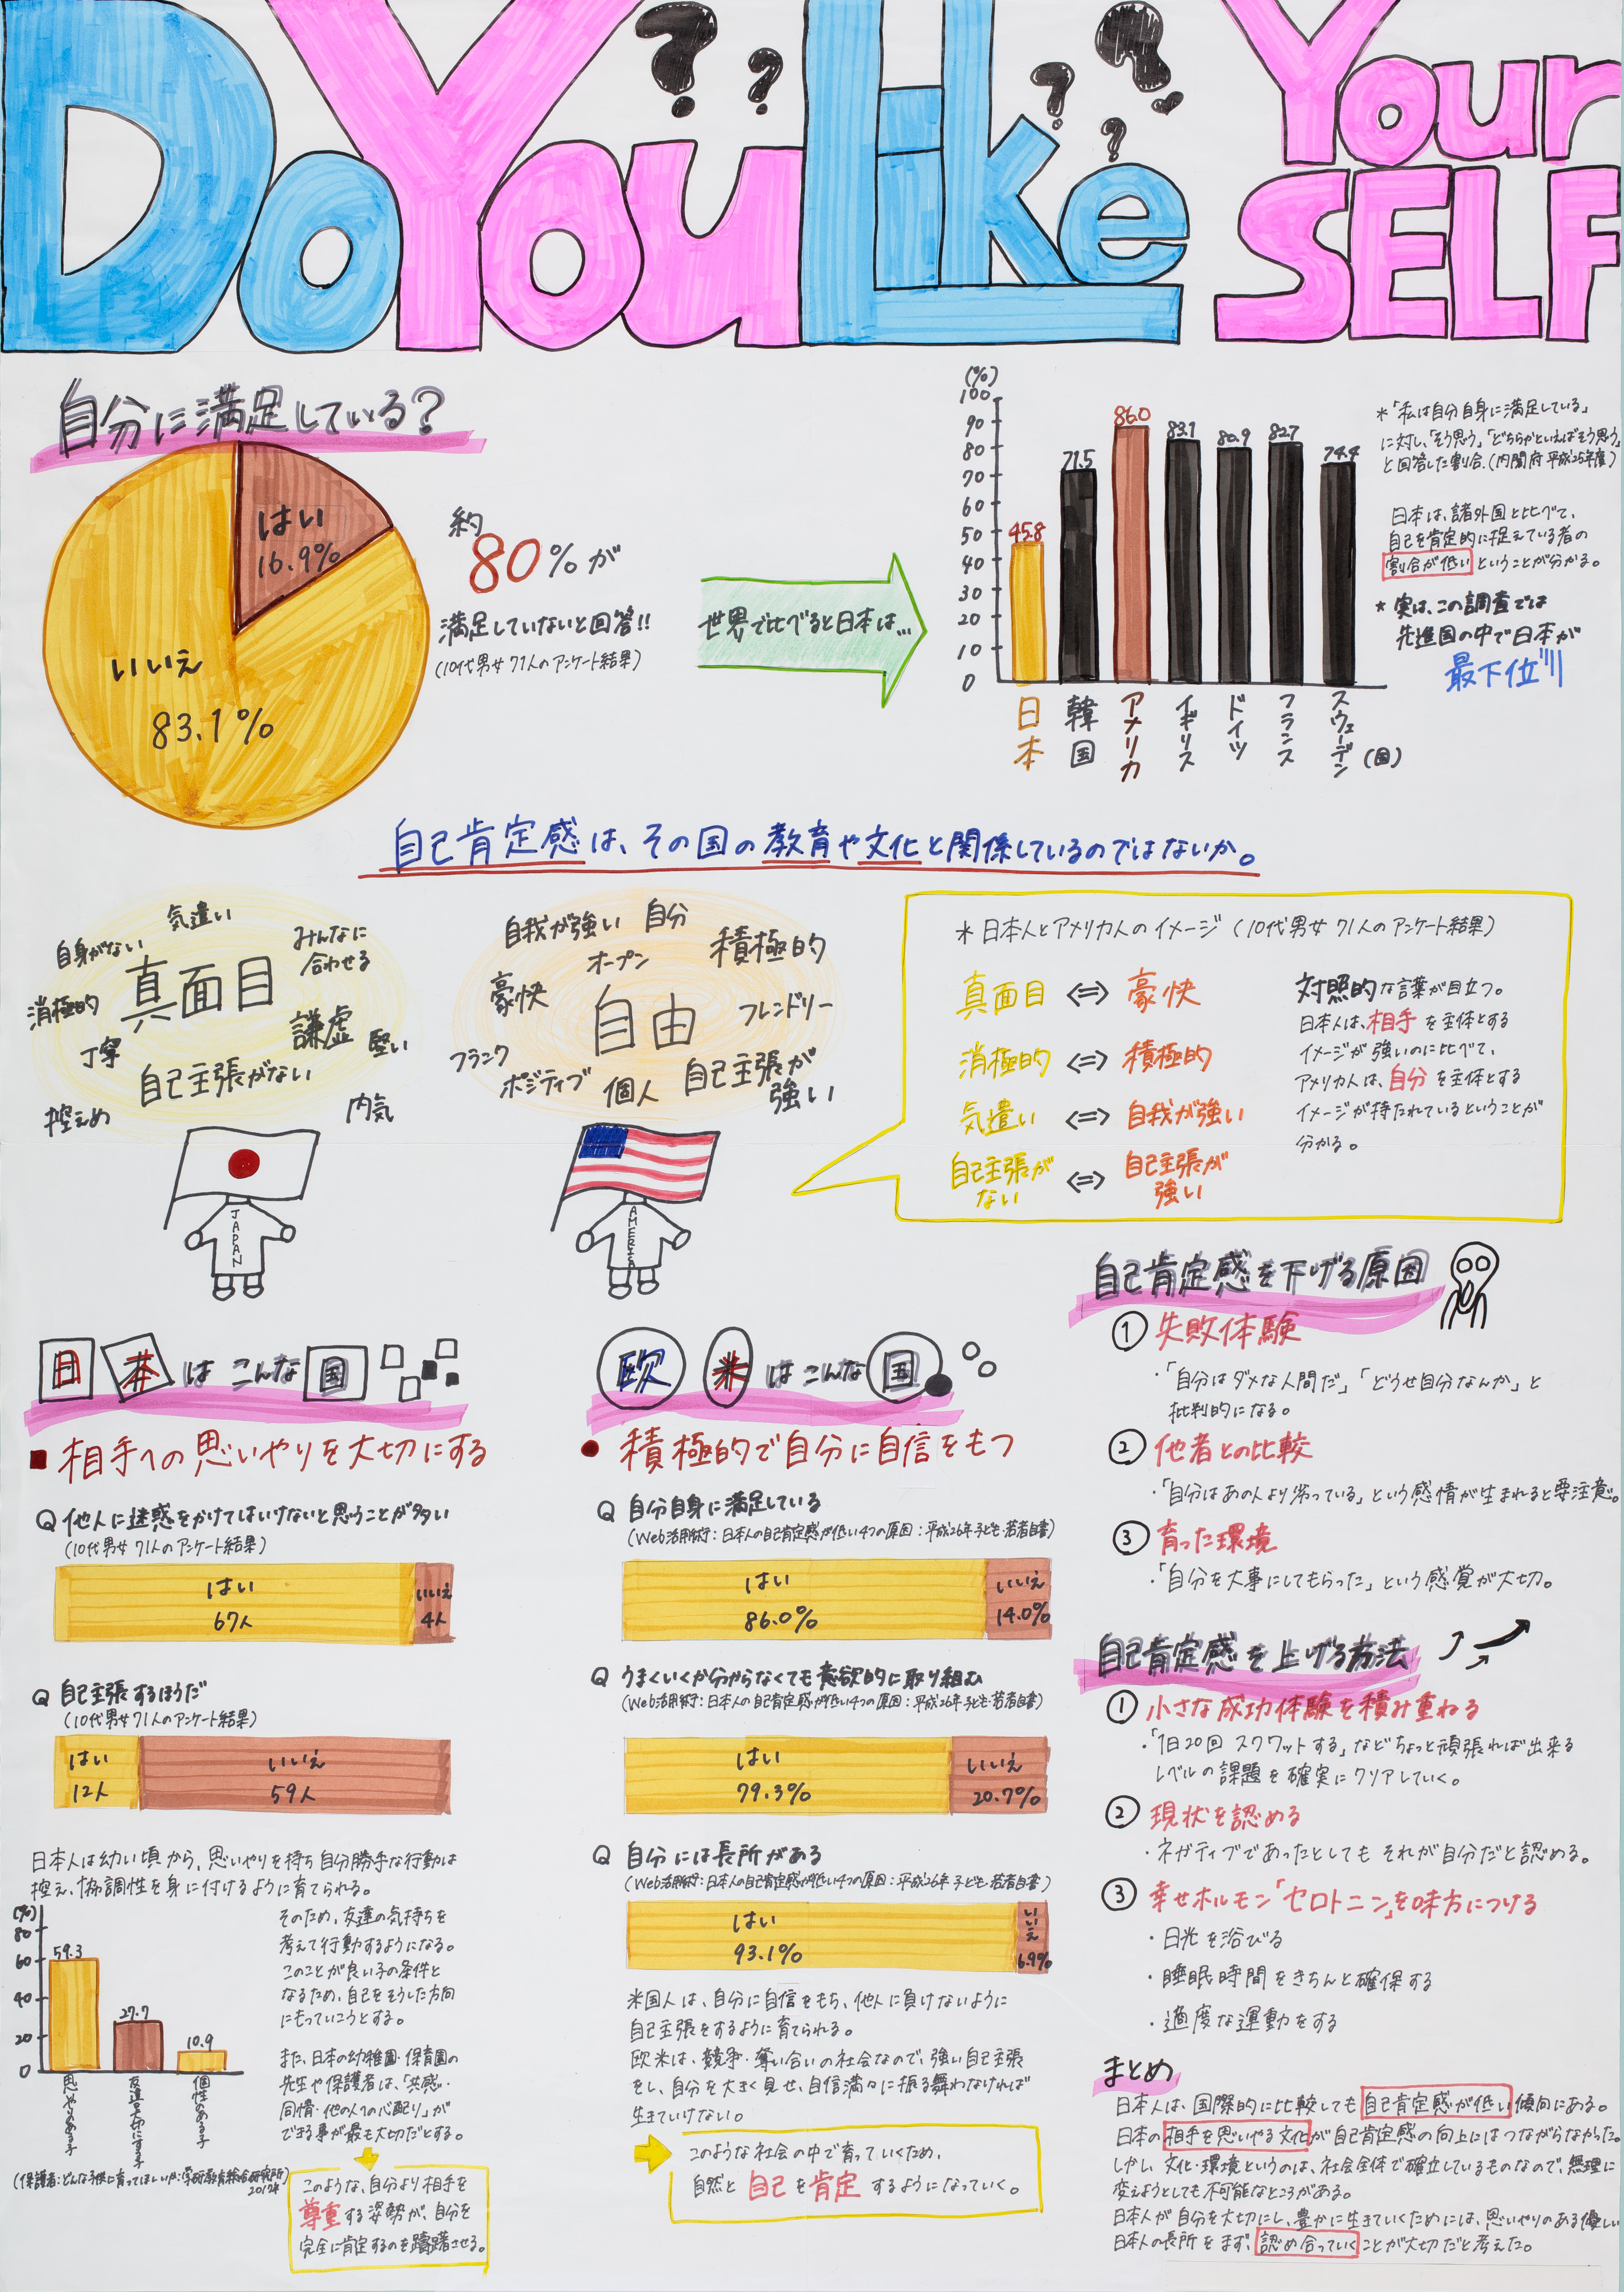 Do You Like Your SELF
自分に満足している?
はい
16.9%
いいえ
83.1%
約
80%が
満足していないと回答!!
(10代男女71人のアンケート結果)
世界で比べると日本は…
(%)
100
90
80
70
60
50
40
30
20
10
0
45.8
71.5
86.0
83.1
80.9
82.7
74.4
日本
韓国
アメリカ
イギリス
ドイツ
フランス
スウェーデン
(国)
*「私は自分自身に満足している」
に対し、「そう思う」「どちらかといえばそう思う」
と回答した割合。(内閣府 平成25年度)
日本は、諸外国と比べて、
自己を肯定的に捉えている者の
割合が低いということが分かる。
* 実は、この調査では
先進国の中で日本が
最下位!!!
自己肯定感は、その国の教育や文化と関係しているのではないか。
気遣い
自身がない
みんなに
合わせる
真面目
消極的
謙虚
堅い
丁寧
自己主張がない
控えめ
内気
JAPAN
自我が強い
自分
オープン
積極的
豪快
自由
フレンドリー
フランク
ポジティブ
個人
自己主張が
強い
AMERICA
* 日本人とアメリカ人のイメージ(10代男女71人のアンケート結果)
真面目 <=> 豪快
消極的 <=> 積極的
気遣い <=> 自我が強い
自己主張が
ない <=> 自己主張が
強い
対照的な言葉が目立つ。
日本人は、相手を主体とする
イメージが強いのに比べて、
アメリカ人は、自分を主体とする
イメージが持たれているということが
分かる。
日本はこんな国
■ 相手への思いやりを大切にする
Q 他人に迷惑をかけてはいけないと思うことが多い
(10代男女71人のアンケート結果)
はい
67人
いいえ
4人
Q 自己主張するほうだ
(10代男女71人のアンケート結果)
はい
12人
いいえ
59人
日本人は幼い頃から、思いやりを持ち自分勝手な行動は
控え、協調性を身に付けるように育てられる。
(%)
80
60
40
20
0
59.3
27.7
10.9
思いやりのある子
友達を大切にする子
個性のある子
(保護者:どんな子供に育ってほしいか:学研教育総合研究所)
2017年
そのため、友達の気持ちを
考えて行動するようになる。
このことが良い子の条件と
なるため、自己をそうした方向
にもっていこうとする。
また、日本の幼稚園・保育園の
先生や保護者は、「共感・
同情・他の人への心配り」が
できる事が最も大切だとする。
このような、自分より相手を
尊重する姿勢が、自分を
完全に肯定するのを躊躇させる。
欧米はこんな国
● 積極的で自分に自信をもつ
Q 自分自身に満足している
(Web活用術:日本人の自己肯定感が低い4つの原因:平成26年 子ども・若者白書)
はい
86.0%
いいえ
14.0%
Q うまくいくか分からなくても意欲的に取り組む
(Web活用術:日本人の自己肯定感が低い4つの原因:平成26年 子ども・若者白書)
はい
79.3%
いいえ
20.7%
Q 自分には長所がある
(Web活用術:日本人の自己肯定感が低い4つの原因:平成26年 子ども・若者白書)
はい
93.1%
いいえ
6.9%
米国人は、自分に自信をもち、他人に負けないように
自己主張をするように育てられる。
欧米は、競争・奪い合いの社会なので、強い自己主張
をし、自分を大きく見せ、自信満々に振る舞わなければ
生きていけない。
このような社会の中で育っていくため、
自然と自己を肯定するようになっていく。
自己肯定感を下げる原因
① 失敗体験
・「自分はダメな人間だ」「どうせ自分なんか」と
批判的になる。
② 他者との比較
・「自分はあの人より劣っている」という感情が生まれると要注意。
③ 育った環境
・「自分を大事にしてもらった」という感覚が大切。
自己肯定感を上げる方法
① 小さな成功体験を積み重ねる
・「1日20回 スクワットする」などちょっと頑張れば出来る
レベルの課題を確実にクリアしていく。
② 現状を認める
・ネガティブであったとしても それが自分だと認める。
③ 幸せホルモン「セロトニン」を味方につける
・日光を浴びる
・睡眠時間をきちんと確保する
・適度な運動をする
まとめ
日本人は、国際的に比較しても自己肯定感が低い傾向にある。
日本の相手を思いやる文化が自己肯定感の向上にはつながらなかった。
しかし 文化・環境というのは、社会全体で確立しているものなので、無理に
変えようとしても不可能なところがある。
日本人が自分を大切にし、豊かに生きていくためには、思いやりのある優しい
日本人の長所をまず、認め合っていくことが大切だと考えた。